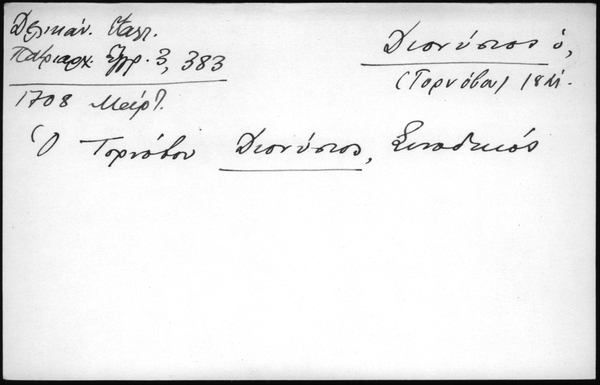 Δελικάν. Καλ.
Πατριαρχ. Ἔγγρ. 3, 383
1708 Μάρτ.
Διονύσιος ὁ,
(Τορνόβου) 18
Ὁ Τορνόβου Διονύσιος, Συνοδικός